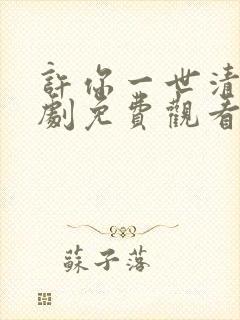 許你一世清
劇免費觀看
蘇子落